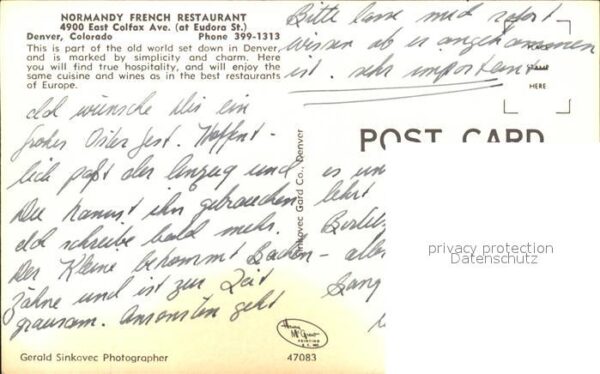 NORMANDY FRENCH RESTAURANT
4900 East Colfax Ave. (at Eudora St.)
Denver, Colorado Phone 399-1313
This is part of the old world set down in Denver,
and is marked by simplicity and charm. Here
you will find true hospitality, and will enjoy the
same cuisine and wines as in the best restaurants
of Europe.
Bitte lasse mich sofort
wissen ob er angekommen
ist. sehr important
HERE
POST CARD
Ich wünsche Dir ein
frohes Osterfest. Hoffent-
lich paßt der Anzug und
Du kannst ihn gebrauchen
Ich schreibe bald mehr.
Der Kleine bekommt Backen-
zähne und ist zur Zeit
grausam. Ansonsten geht
es un
lehrt
alles
Sinkovec Card Co., Denver
privacy protection
Datenschutz
PRINTING
Gerald Sinkovec Photographer
47083